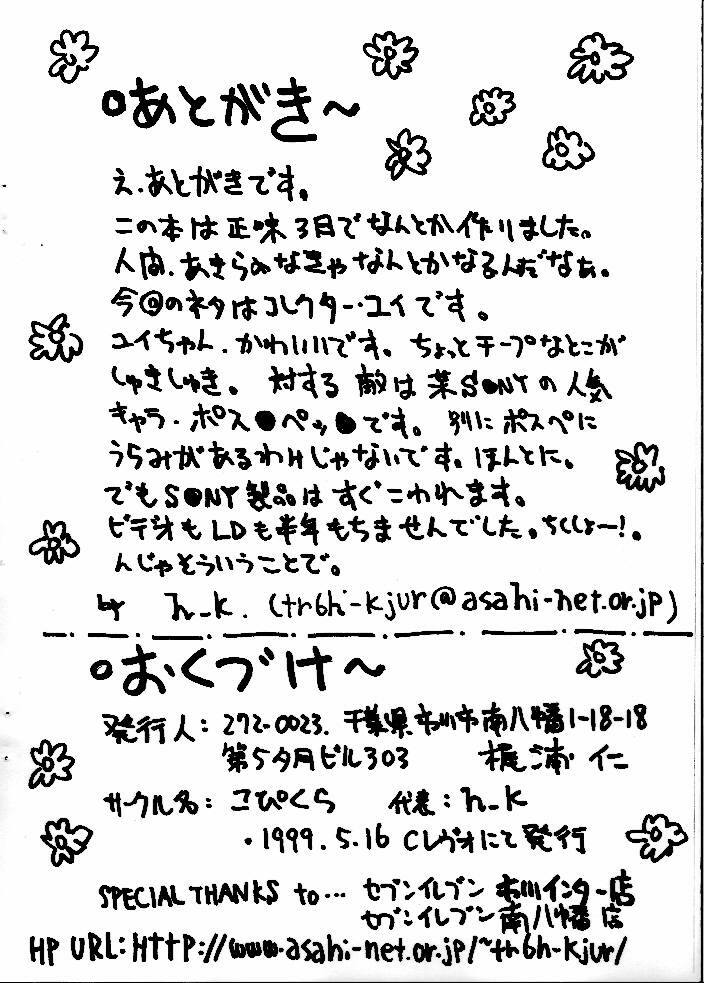 °あとがき〜
え、あとがきです。
この本は正味3日でなんとか作りました。
人間、あきらめなきゃなんとかなるんだなぁ。
今回のネタはコレクター・ユイです。
ユイちゃん、かわいいです。ちょっとチープなとこが
しゅきしゅき。対する敵は某S●NYの人気
キャラ・ポス●ペッ●です。別にポスペに
うらみがあるわけじゃないです。ほんとに。
でもS●NY製品はすぐこわれます。
ビデオもLDも半年もちませんでした。ちくしょー!。
んじゃそういうことで。
by h_k. (tr6h-kjur@asahi-net.or.jp)
°おくづけ〜
発行人: 272-0023. 千葉県市川市南八幡1-18-18
第5夕月ビル303 梶浦 仁
サークル名: こぴくら 代表: h_k
・1999.5.16 Cレヴォにて発行
SPECIAL THANKS to… セブンイレブン 市川インター店
セブンイレブン 南八幡店
HP URL: HTTP://www.asahi-net.or.jp/~tr6h-kjur/